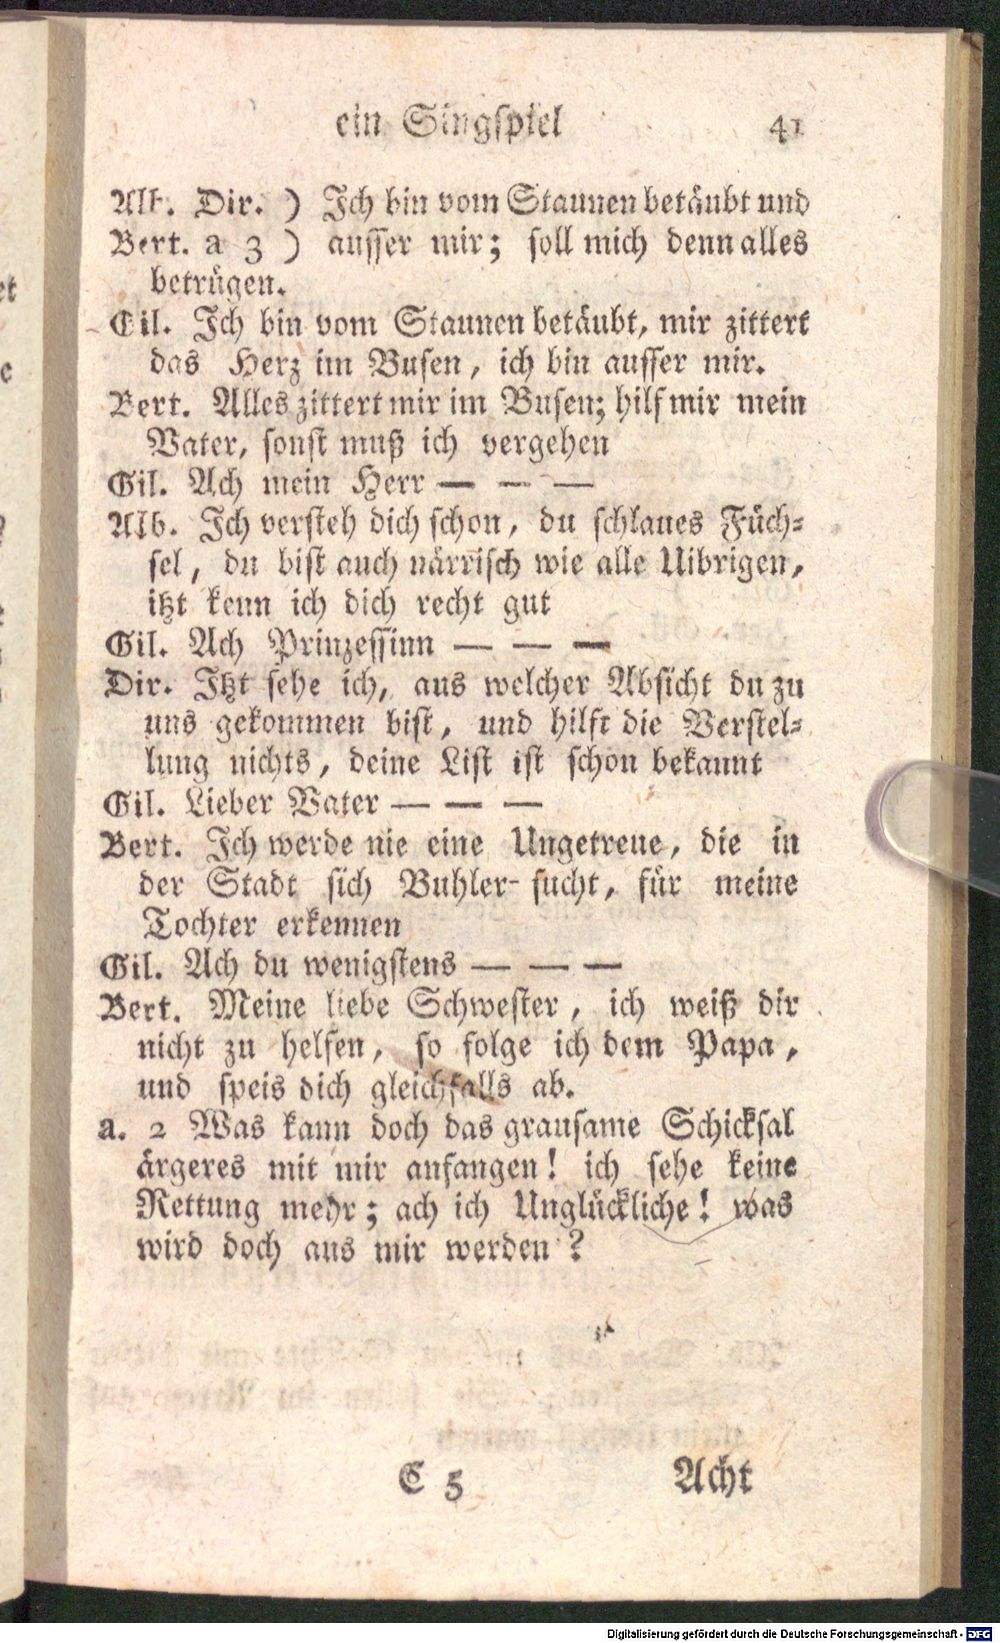 ein Singspiel 41
Alb. Dir. ) Ich bin vom Staunen betäubt und
Bert. a 3 ) ausser mir; soll mich denn alles
betrügen.
Gil. Ich bin vom Staunen betäubt, mir zittert
das Herz im Busen, ich bin ausser mir.
Bert. Alles zittert mir im Busen; hilf mir mein
Vater, sonst muß ich vergehen
Gil. Ach mein Herr — — —
Alb. Ich versteh dich schon, du schlaues Füch-
sel, du bist auch närrisch wie alle Uibrigen,
itzt kenn ich dich recht gut
Gil. Ach Prinzessinn — — —
Dir. Itzt sehe ich, aus welcher Absicht du zu
uns gekommen bist, und hilft die Verstel-
lung nichts, deine List ist schon bekannt
Gil. Lieber Vater — — —
Bert. Ich werde nie eine Ungetreue, die in
der Stadt sich Buhler sucht, für meine
Tochter erkennen
Gil. Ach du wenigstens — — —
Bert. Meine liebe Schwester, ich weiß dir
nicht zu helfen, so folge ich dem Papa,
und speis dich gleichfalls ab.
a. 2 Was kann doch das grausame Schicksal
ärgeres mit mir anfangen! ich sehe keine
Rettung mehr; ach ich Unglückliche! was
wird doch aus mir werden?
C 5 Acht
Digitalisierung gefördert durch die Deutsche Forschungsgemeinschaft - DFG